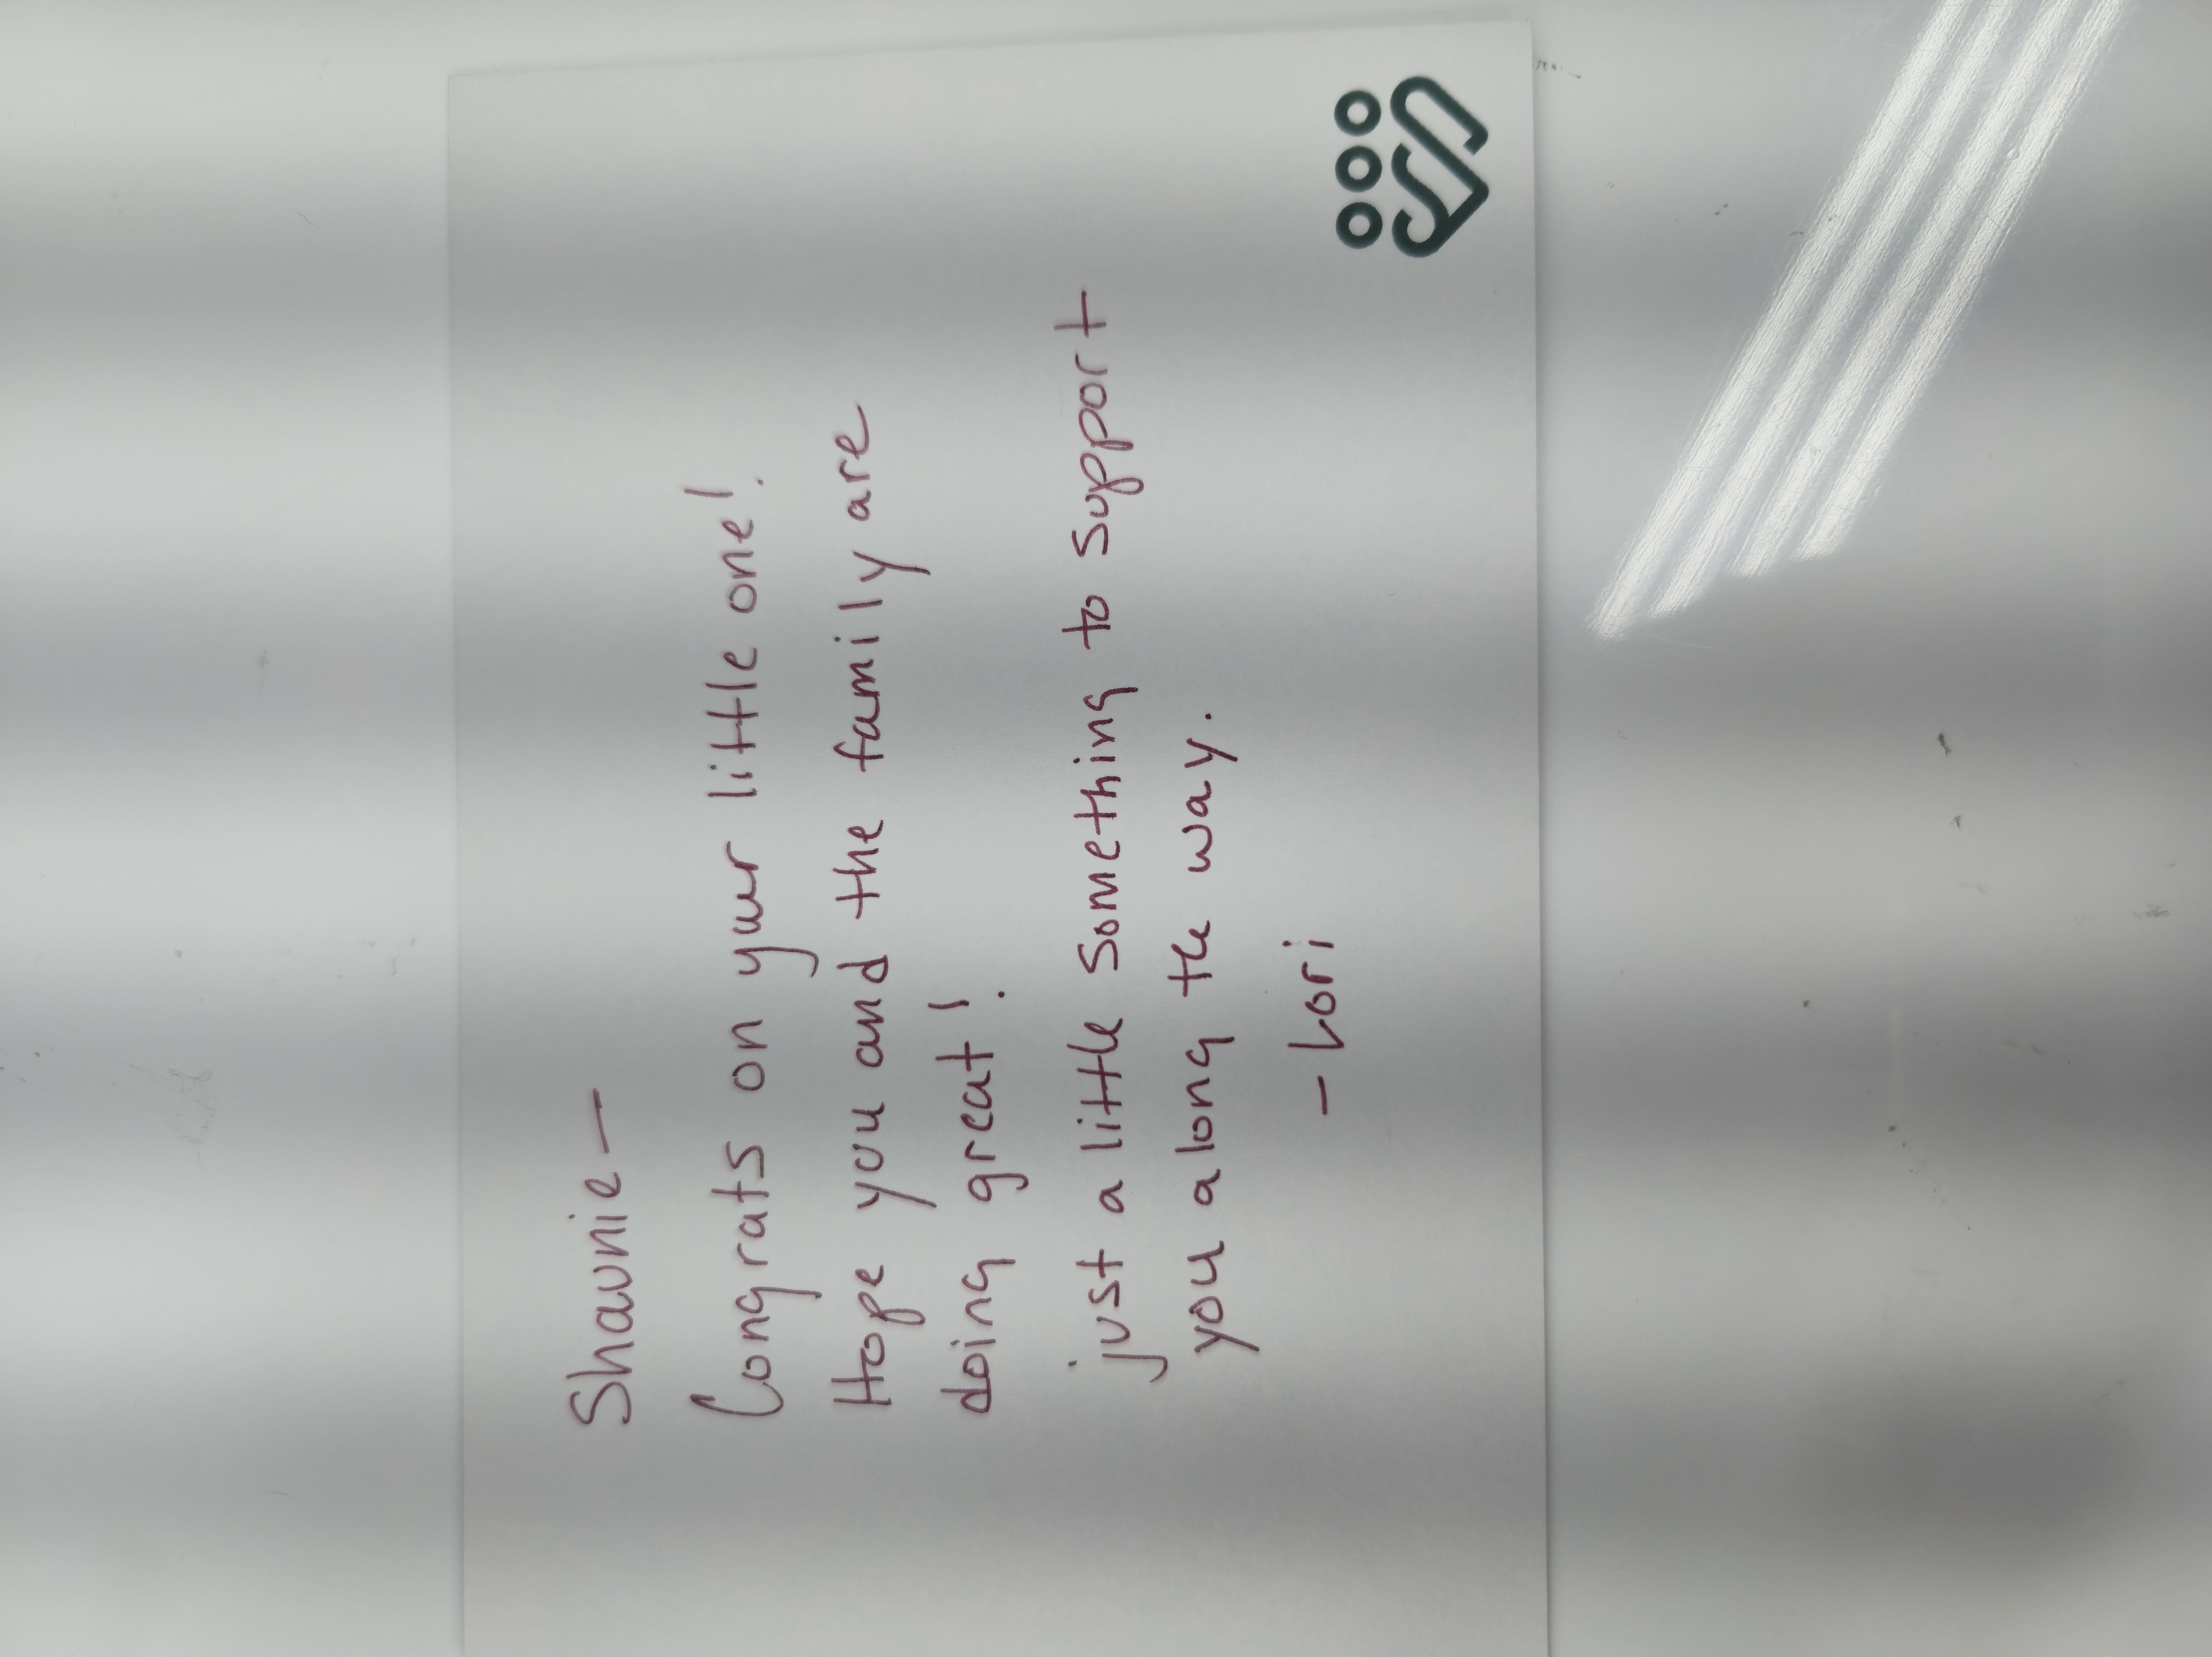 Shaunie —
Congrats on your little one!
Hope you and the family are
doing great!
just a little something to support
you along the way.
- Lori